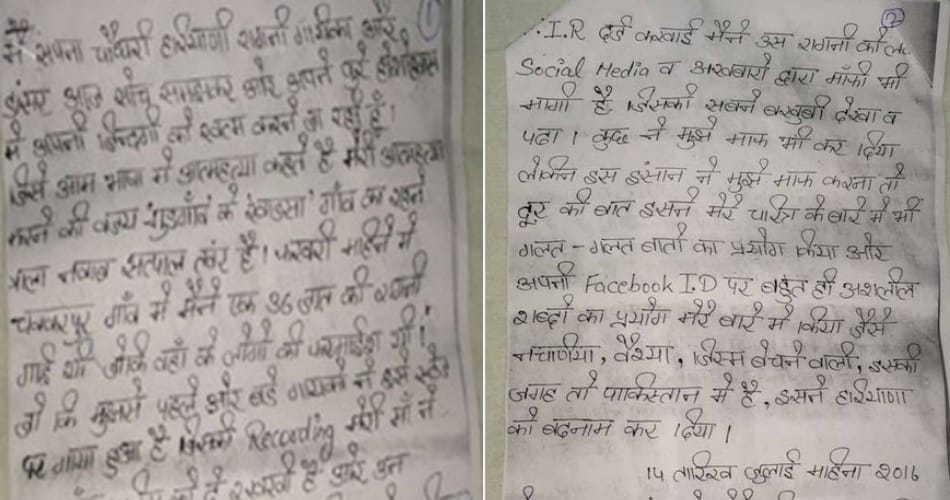 ①
मैं सपना चौधरी हरियाणी रागनी गायिका और
डांसर आज सोच समझकर और अपने पूरे होशोहवास
में अपनी जिन्दगी को खत्म करने जा रही हूँ।
जिसे आम भाषा में आत्महत्या कहते है मेरी आत्महत्या
करने की वजय गुडगाँव के खांडसा गाँव का रहने
वाला नवाब सतपाल तंवर है। फरवरी महिने में
चक्करपुर गाँव में मैंने एक 36 जात की रागनी
गाई थी जोकि वहाँ के लोगो की फरमाईश थी।
जो कि मुझसे पहले और बडे गायको ने इसे स्टेज
पर गाया हुआ है जिसकी Recording मेरी माँ ने
है और उन
②
I.R दर्ज करवाई मैंने उस रागनी को ले
Social Media व अखबारो द्वारा माँफी भी
मागी है जिसको सबने बखुबी देखा व
पढा। कुछ ने मुझे माफ भी कर दिया
लेकिन इस इंसान ने मुझे माफ करना तो
दूर की बात इसने मेरे चारित्र के बारे में भी
गलत - गलत बातो का प्रयोग किया और
अपनी Facebook I.D पर बहुत ही अशलील
शब्दो का प्रयोग मेरे बारे में किया जैसे
नचाणिया, वैश्या, जिस्म बेचने वाली, इसकी
जगह तो पाकिस्तान में है, इसने हरियाणा
को बदनाम कर दिया।
14 तारिख जुलाई महिना 2016